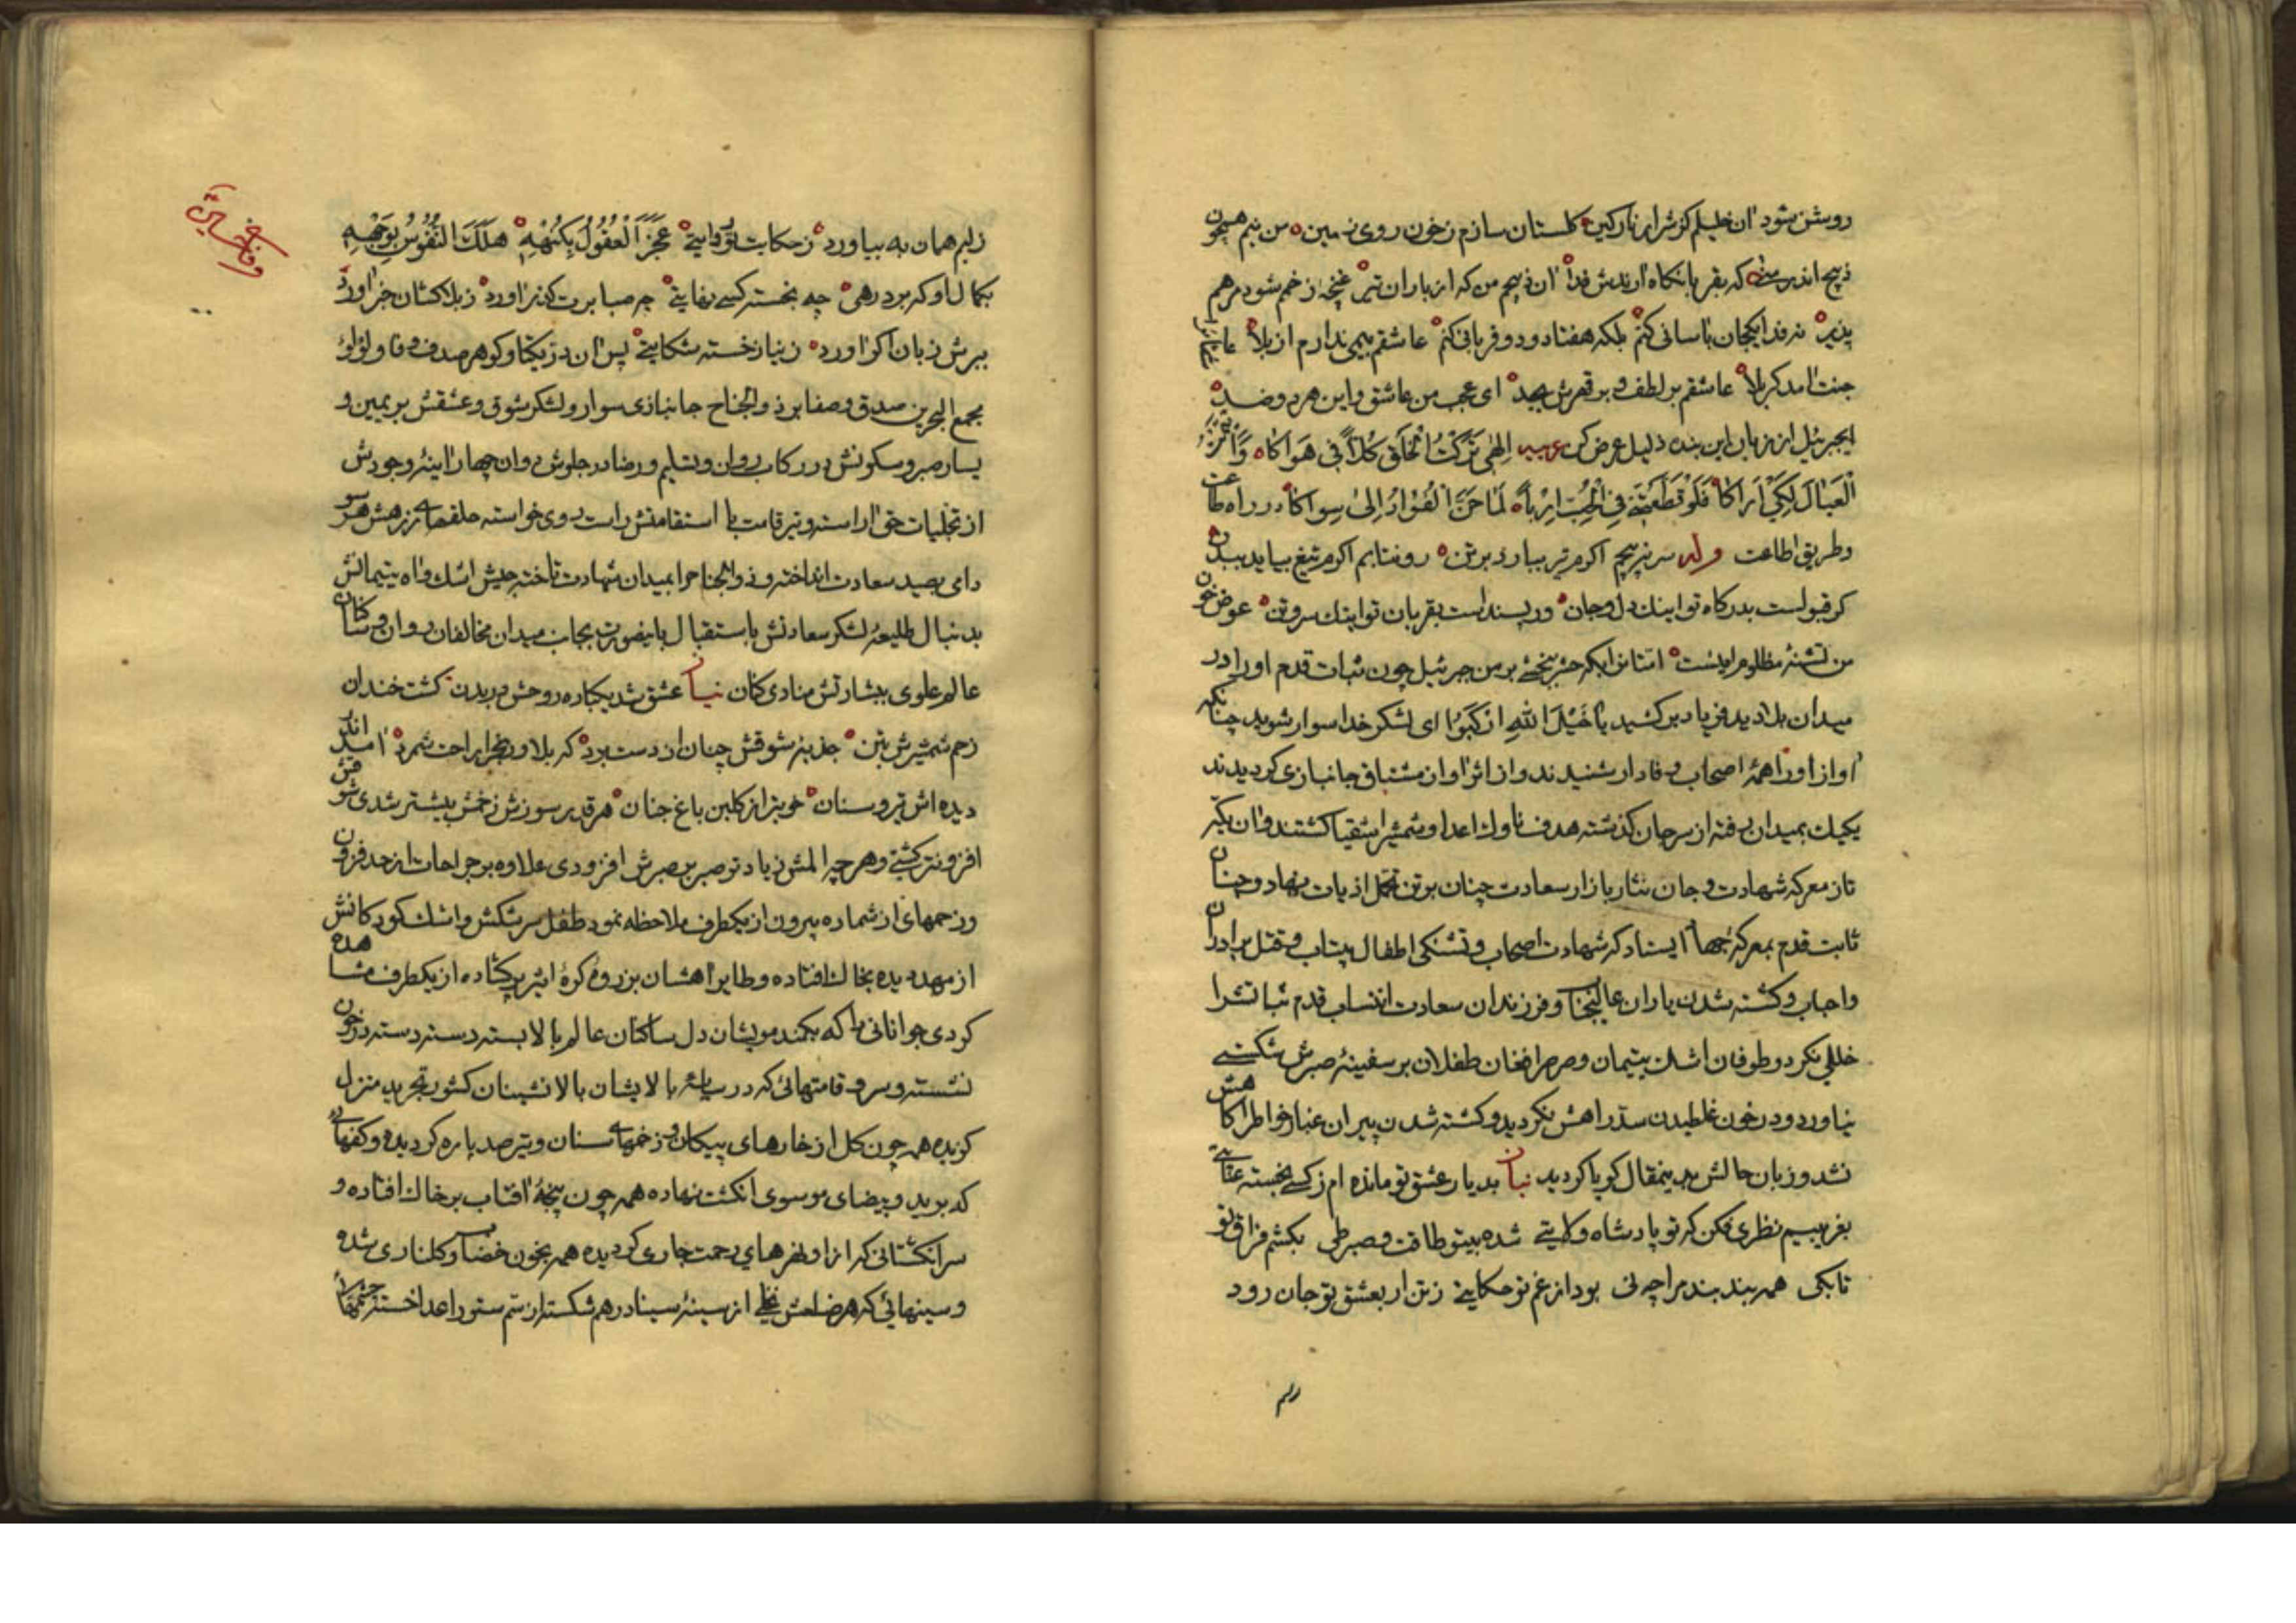 روشن شود آن خلیلم کز شرار نار کین کلستان سازم ز خون روی زمین من نیم همچون
ذبیح اندر که بقربانکاه آرندش فدا آن ذبیحم من که از باران تیر غنچه زخمم شود مرهم
پذیر نه فدا یکجان باسانی کنم بلکه هفتاد و دو قربانی کنم عاشقم بیمی ندارم از بلا عاشقانرا
جنت آمد کربلا عاشقم بر لطف و بر قهرش بجد ای عجب من عاشق و این هر دو ضد
ایجبرئیل از زبان این بنده ذلیل عرض کن عربیه اِلهٰی تَرَکْتُ الْخَلْقَ کُلّاً فی هَوَاکا وَاَیْتَمْتُ
الْعَیٰالَ لِکَیْ اَرَاکٰا فَلَوْ قَطَّعْتَنی فِی الْحُبِّ اِرْباً لَمٰا حَنَّ الْفُوٰادُ اِلیٰ سِوٰاکٰا در راه طاعت
و طریق اطاعت وله سر نپیچم اکرم تیر ببارد بر تن رو نتابم اکرم تیغ بیاید ببدن
کر قبولست بدرکاه تو اینک دل و جان ور پسنداست بقربان تو اینک سر و تن عوض خون
من تشنهٔ مظلوم امتانرا بکه بخشی بر من جبرئیل چون ثبات قدم او را در
میدان بلا دید فریاد برکشید یٰا خَیْلَ اللهِ ازْکَبُوا ای لشکر خدا سوار شوید چنانکه
آواز او را همهٔ اصحاب وفادار شنیدند و از اثر آواز مشتاق جانبازی کردیدند
یکیک بمیدان رفته از سر جان کذشته هدف ناوک اعدا و شمشیر اشقیا کشتند و آن یکه
تاز معرکه شهادت و جان نثار بازار سعادت چنان بر تن تحمل اذیات نهاد و چنان
ثابت قدم بمعرکهٔ جهاد ایستاد که شهادت اصحاب و تشنکی اطفال بیتاب و قتل برادران
و احباب و کشته شدن یاران عالیجناب و فرزندان سعادت انتساب قدم ثباتشرا
خللی نکرد و طوفان اشک یتیمان و صرصر افغان طفلان بر سفینهٔ صبرش شکستی
نیاورد و در خون غلطیدن سدّ راهش نکردید و کشته شدن پیران غبار خواطر آکاهش
نشد و زبان حالش بدینمقال کویا کردید نیاز بدیار عشق تو مانده ام ز کسی بخسته عنایتی
بغریبیم نظری فکن که تو پادشاه ولایتی شده بیتو طاقت و صبر طی بکشم فراق تو
تا بکی همه بند بند مرا چو نی بود از غم تو حکایتی ز تن ار بعشق تو جان رود
زلبم همان به بیاورد ز حکایت تو روایتی عَجَزَ الْعُقُولُ بِکُنْهِهِ هَلَکَ النُّفُوسُ بِوَجْهِهِ
بکمال او که برد رهی چه بخسته کسی بغایتی چه صبا برت کذر آورد ز بلاکشان خبر آورد
ببرش زبان اکر آورد ز نیاز خسته شکایتی پس آن در یکتا و کوهر صدف وفا و لؤلؤ
مجمع البحرین صدق و صفا بر ذوالجناح جانبازی سوار و لشکر شوق و عشقش بر یمین و
یسار صبر و سکونش در رکاب روان و تسلیم و رضا در جلوش دوان چهار آینهٔ وجودش
از تجلیات حق آراسته و تیر قامت با استقامتش راست روی خواسته حلقهای زرهش هر سو
دامی بصید سعادت انداخته و ذوالجناح را بمیدان شهادت تاخته جیش اشک و آه یتیمانش
بدنبال طلیعهٔ لشکر سعادتش باستقبال باینصورت بجانب میدان مخالفان روان و ساکنان
عالم علوی ببشارتش منادی کنان نیاز عشق شد یکباره روحش در بدن کشت خندان
زخم شمشیرش بتن جذبهٔ شوقش چنان از دست برد که بلا و رنج را راحت شمرد آمد اندر
دیده اش تیر و سنان خوبتر از کلبن باغ جنان هر قدر سوزش زخمش بیشتر شدی شوقش
افزونتر کشتی و هر چه المش زیادتر صبر بر صبرش افزودی علاوه بر جراحات از حد فزون
و زخمهای از شماره بیرون از یکطرف ملاحظه نمود طفل سرشکش و اشک کودکانش
از مهد دیده بخاک افتاده و طایر آهشان بر روی کرهٔ اثیر پر کشاده از یکطرف مشاهده
کردی جوانانی را که بکمند مویشان دل ساکنان عالم بالا بسته دسته دسته در خون
نشسته و سرو قامتهائی که در سایهٔ بالایشان بالانشینان کشور تجرید منزل
کزیده همه چون کل از خارهای پیکان و زخمهای سنان و تیر صد پاره کردیده و کفهای
که بر ید و بیضای موسوی انکشت نهاده همه چون پنجهٔ آفتاب بر خاک افتاده و
سر انکشتانی که از او نهرهای رحمت جاری کردیده همه بخون خضاب و کلناری شده
و سینهائی که هر ضلعش نخلی از سینهٔ سینا درهم شکسته از سم ستور اعدا خسته جسمها